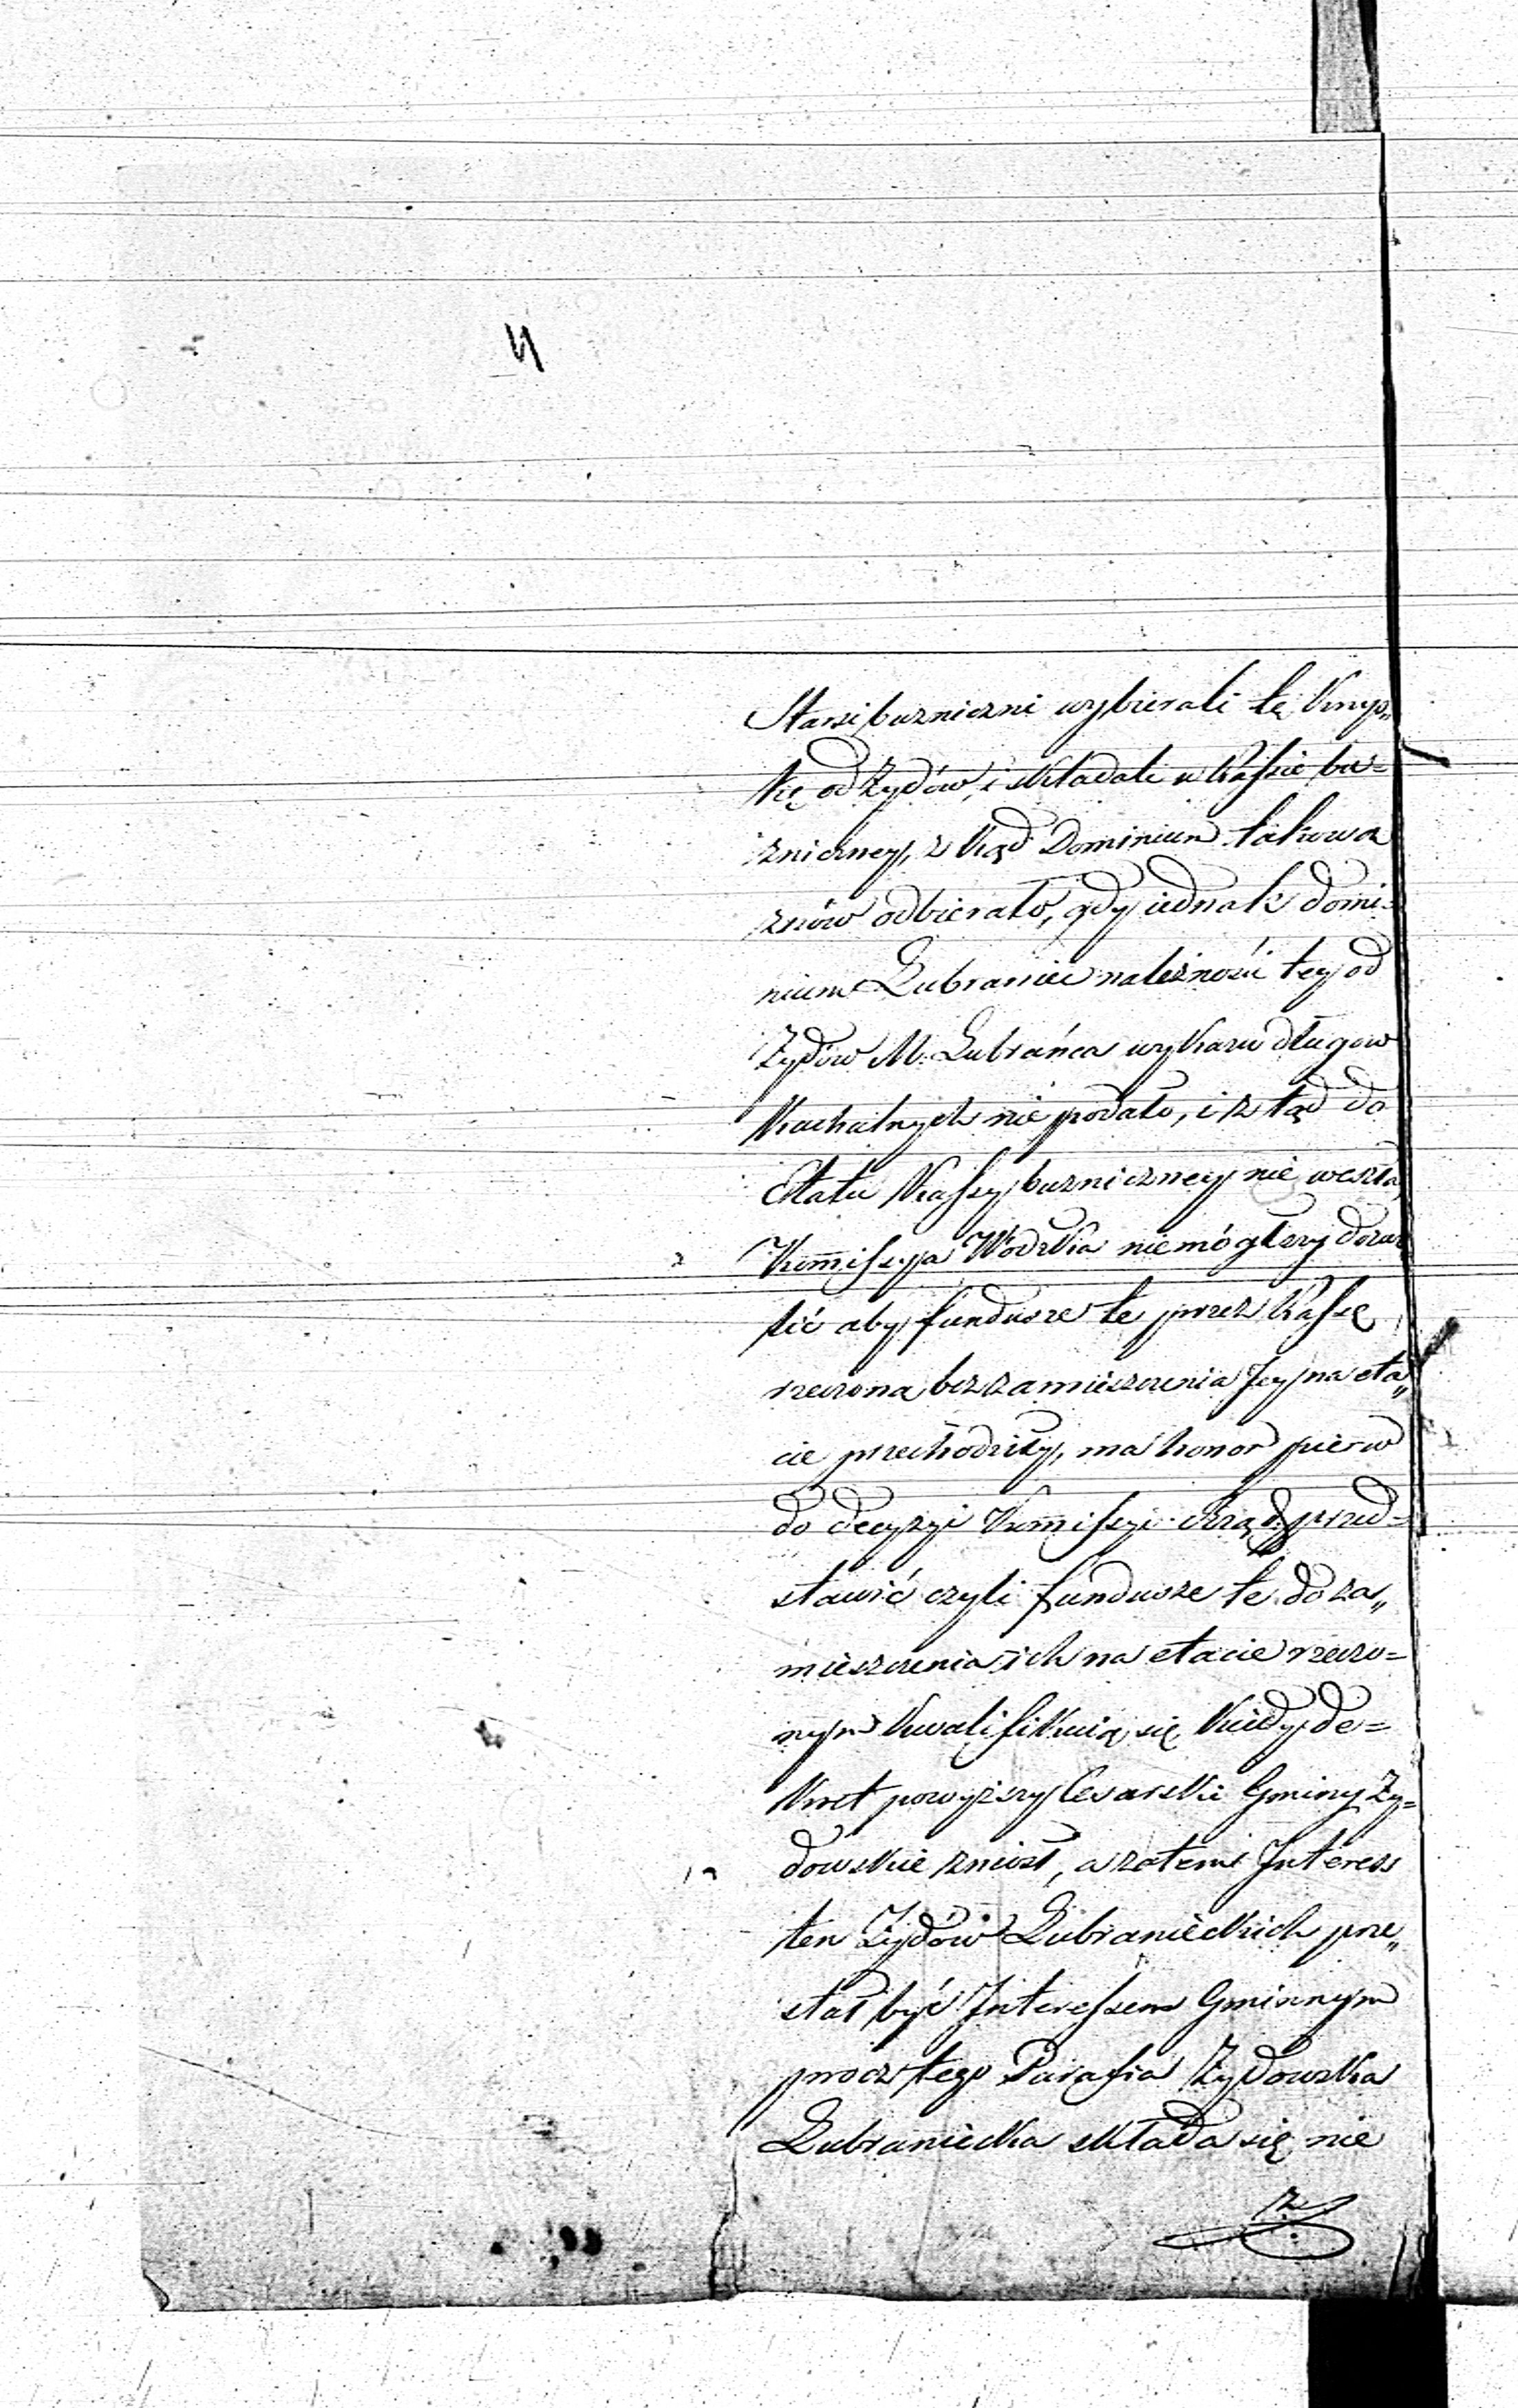 Starsi bużniczni wybierali tę Krup„
kę od Żydów, i składali w Kassie bu=
żniczney, z kąd Dominium takowa
znów odbierało, gdy iednak domi=
nium Lubraniec należności tey od
Żydów M. Lubrańca wykazu długow
Kachalnych nie podało, i z tąd do
Etatu Kassy bużniczney nie weszła
Kommissya Wódzka nie mógłszy dozwo
lić aby fundusze te przez Kassę
rzeczona bez zamieszczenia Jey na eta„
cie przechodziły, ma honor pierw
do decyzyi Kommissyi Rząd. przed=
stawić czyli fundusze te do za„
mieszczenia ich na etacie rzeczo=
nym kwalifikuią się kiedy de=
kret powyższy Cesarski Gminy Ży=
dowskie zniosł, a zatem Interess
ten Żydów Lubranieckich prze„
stał być Interessem Gminnym
procz tego Parafia Żydowska
Lubraniecka składa się nie
z